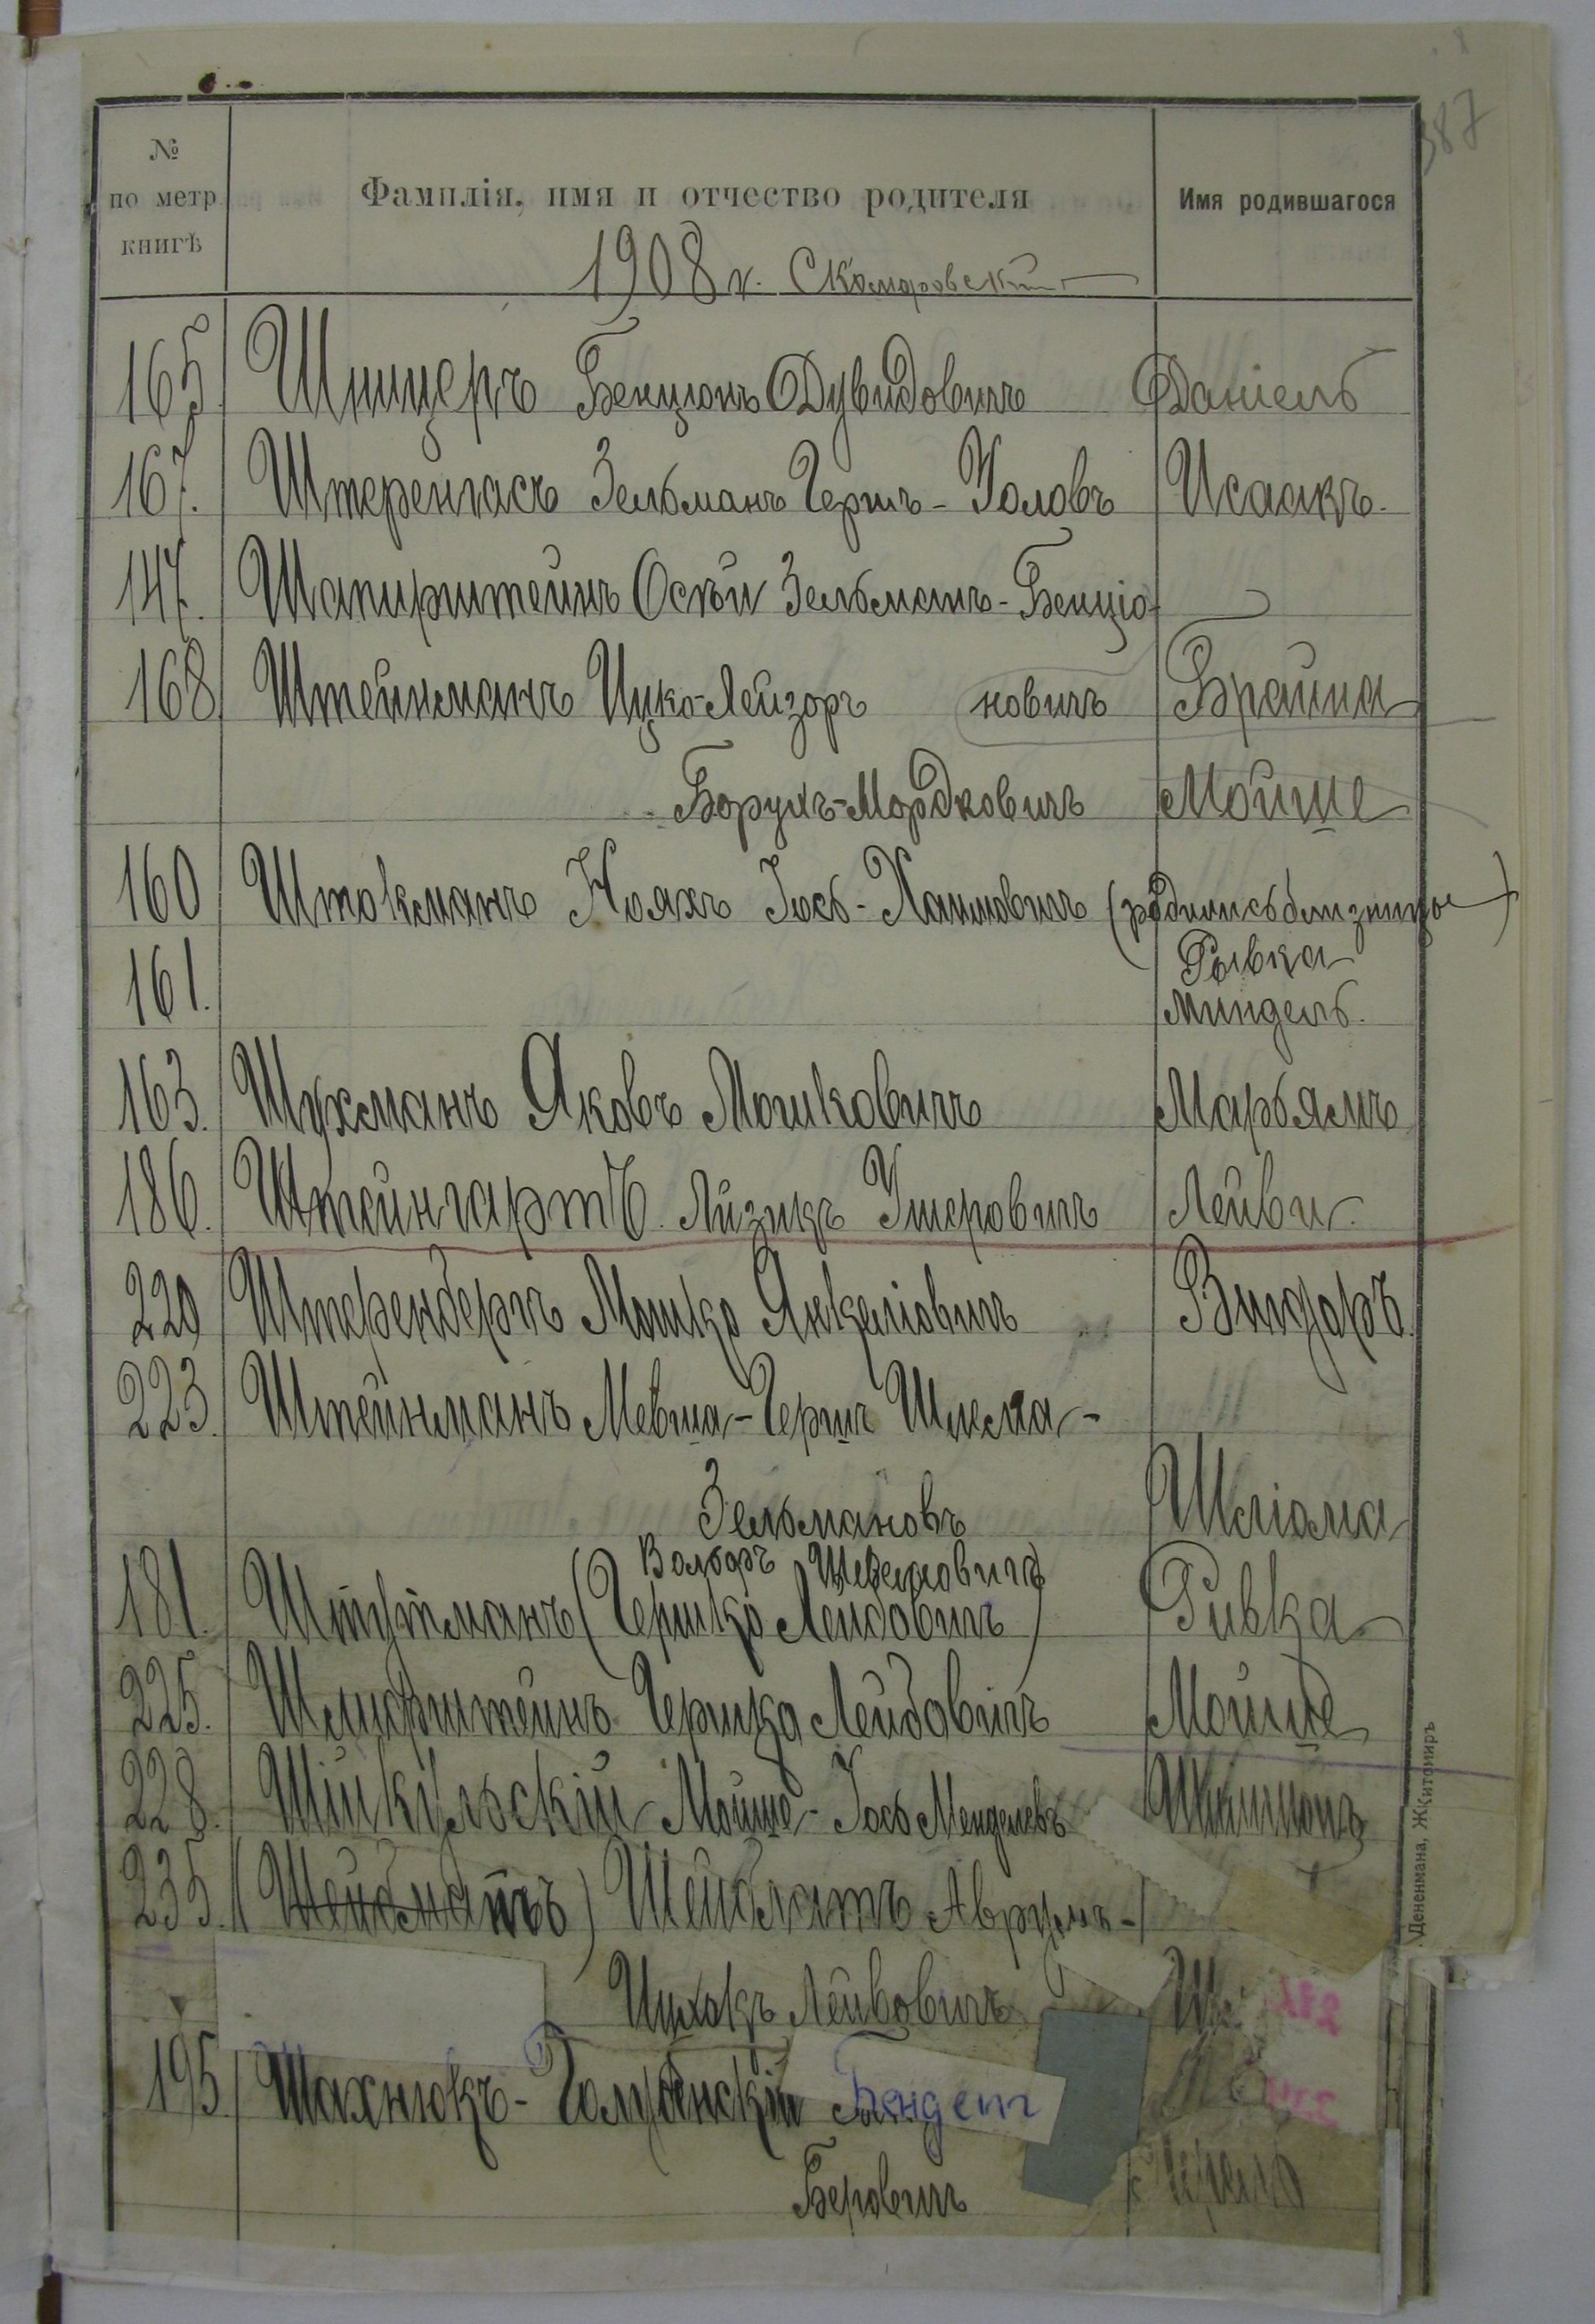 387
№
по метр.
книгѣ
Фамилія, имя и отчество родителя
Имя родившагося
1908 г. Скомаровскій
165. Шницеръ Бенціонъ Дувидовичъ Даніель
167. Штеренгасъ Зельманъ Гершъ-Іоловъ Исаакъ.
147. Шапирштейнъ Осѣй Зельманъ-Бенціо-
168 Штейнманъ Ицко-Лейзоръ новичъ Брайна
Борухъ-Мордковичъ Мойше
160 Штокманъ Нояхъ Іось-Хаимовичъ (родились близнецы)
161. Рывка
Миндель.
163. Шухманъ Яковъ Мошковичъ Марьямъ
186. Штейнгартъ Айзикъ Ушеровичъ Лейви.
220 Штеренберъ Мошко Янкеліовичъ
223. Штейнманъ Мевша-Гершъ Шлема-
Зельмановъ Шліома
Вольфъ
181. Штутманъ (Гершко Лейбовичъ) Ривка
225. Гершко Лейбовичъ Мойше
228. Мойше-Іось Менделевъ
235. Аврумъ-
Ицхокъ Лейбовичъ Ше
195. Шахнюкъ-Голубенскій Бендет
Беровичъ
Дененмана, Житомиръ